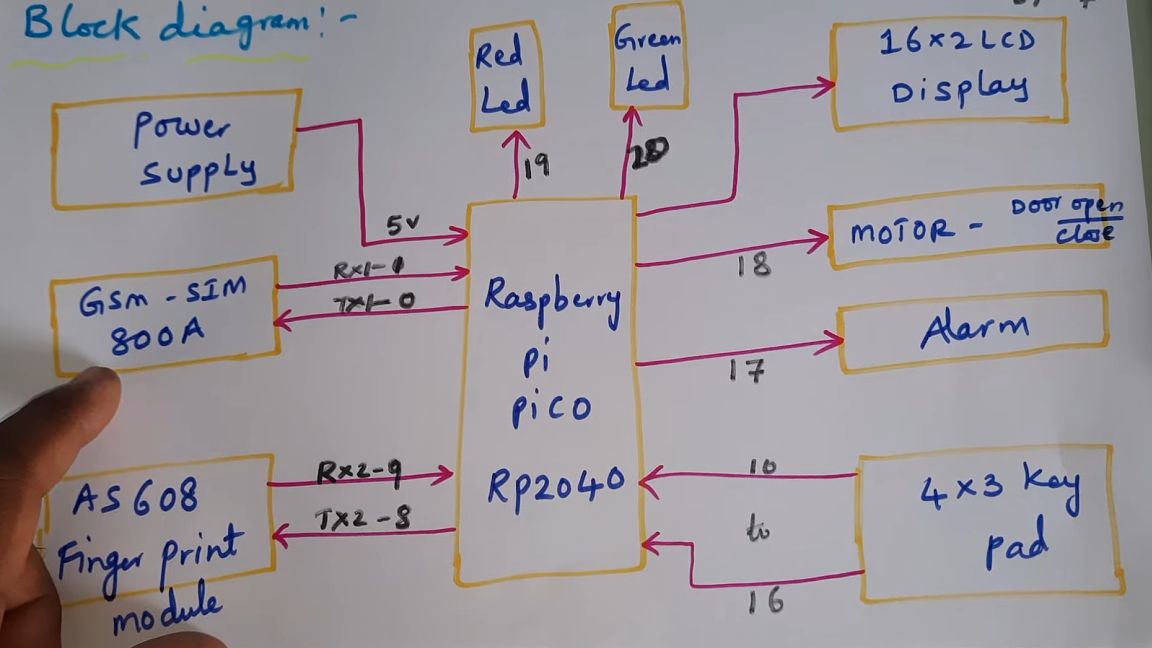 Block diagram:-
Red
Led
Green
Led
16x2 LCD
Display
Power
Supply
19
20
5v
MOTOR - Door open
close
18
GSM - SIM
800A
Rx1-1
TX1-0
Raspberry
pi
pico
RP2040
Alarm
17
AS608
Finger print
module
Rx2-9
TX2-8
10
to
16
4x3 Key
pad